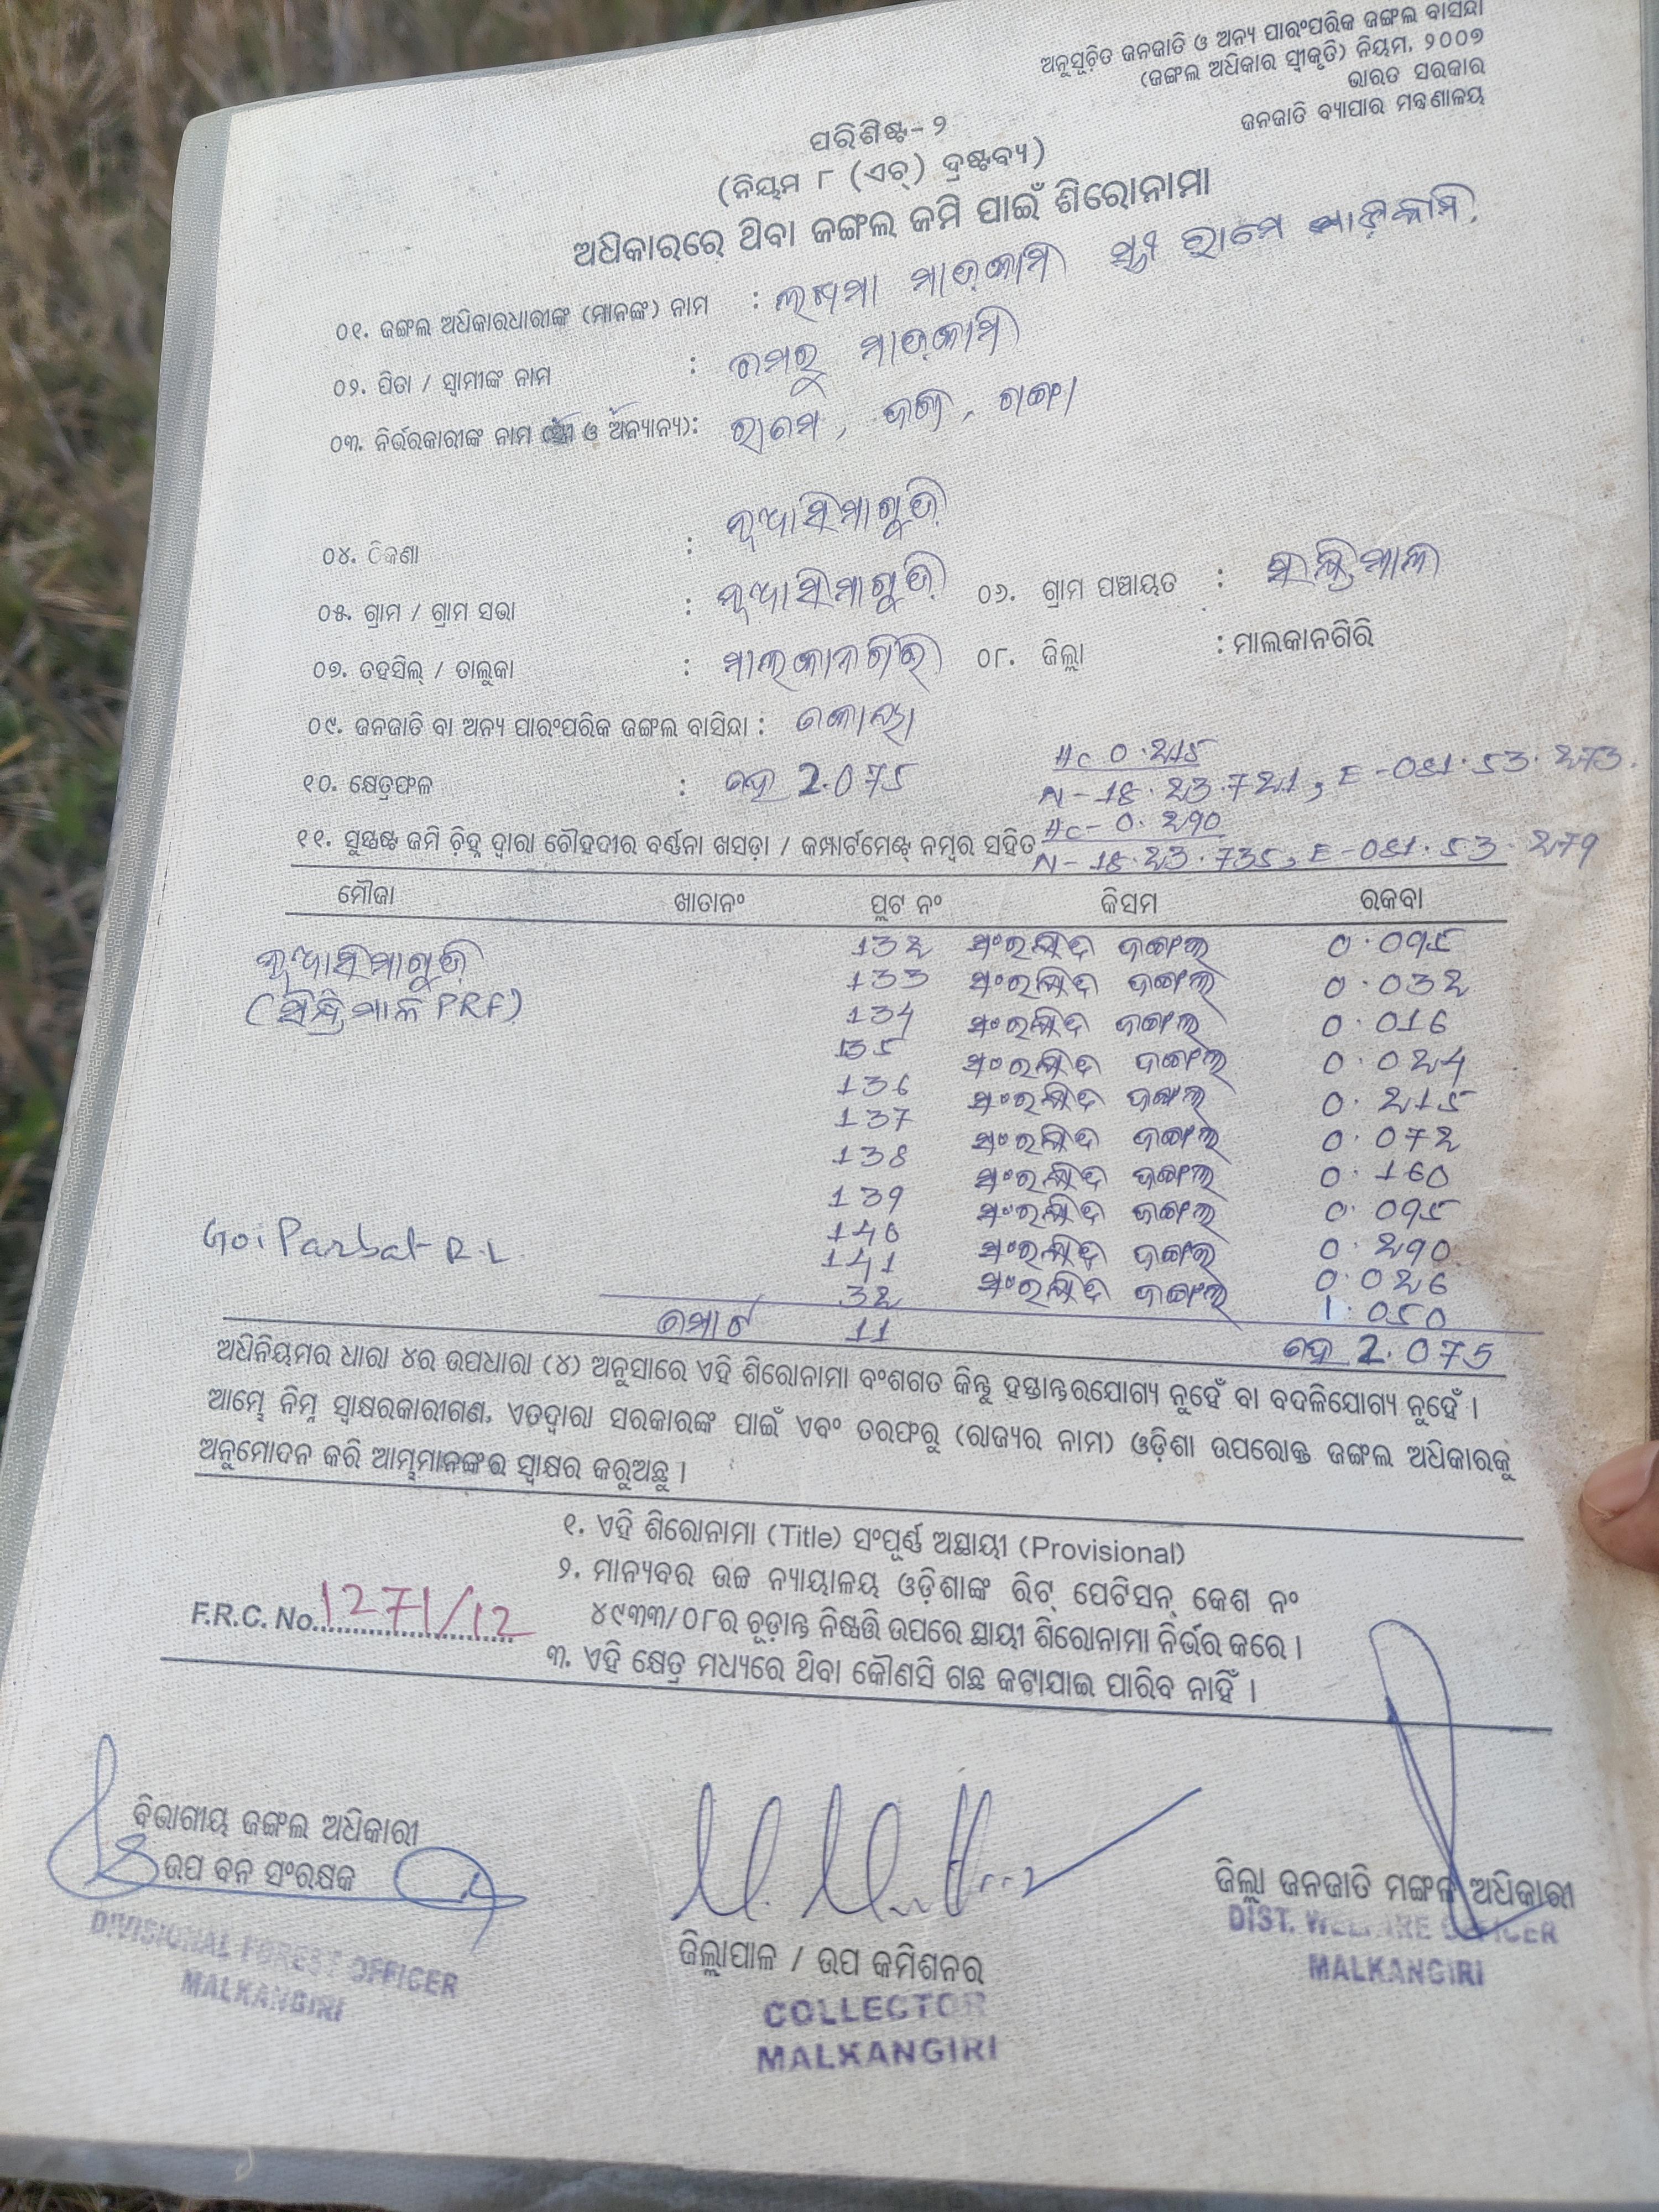 ଅନୁସୂଚିତ ଜନଜାତି ଓ ଅନ୍ୟ ପାରଂପରିକ ଜଙ୍ଗଲ ବାସିନ୍ଦା
(ଜଙ୍ଗଲ ଅଧିକାର ସ୍ୱୀକୃତି) ନିୟମ, ୨୦୦୭
ଭାରତ ସରକାର
ଜନଜାତି ବ୍ୟାପାର ମନ୍ତ୍ରଣାଳୟ
ପରିଶିଷ୍ଟ-୨
(ନିୟମ ୮ (ଏଚ୍) ଦ୍ରଷ୍ଟବ୍ୟ)
ଅଧିକାରରେ ଥିବା ଜଙ୍ଗଲ ଜମି ପାଇଁ ଶିରୋନାମା
୦୧. ଜଙ୍ଗଲ ଅଧିକାରଧାରୀଙ୍କ (ମାନଙ୍କ) ନାମ : ମାଡ଼କାମି ସ୍ତ୍ରୀ ରାମେ ମାଡ଼କାମି
୦୨. ପିତା / ସ୍ୱାମୀଙ୍କ ନାମ : ମାଡ଼କାମି
୦୩. ନିର୍ଭରକାରୀଙ୍କ ନାମ (ସ୍ତ୍ରୀ ଓ ଅନ୍ୟାନ୍ୟ): ରାମେ, ଗଙ୍ଗା
୦୪. ଠିକଣା : ନୂଆସିମାଗୁଡ଼ି
୦୫. ଗ୍ରାମ / ଗ୍ରାମ ସଭା : ନୂଆସିମାଗୁଡ଼ି ୦୬. ଗ୍ରାମ ପଞ୍ଚାୟତ :
୦୭. ତହସିଲ୍ / ତାଲୁକା : ମାଲକାନଗିରି ୦୮. ଜିଲ୍ଲା : ମାଲକାନଗିରି
୦୯. ଜନଜାତି ବା ଅନ୍ୟ ପାରଂପରିକ ଜଙ୍ଗଲ ବାସିନ୍ଦା : କୋୟା
୧୦. କ୍ଷେତ୍ରଫଳ : ହେ 2.075
Hc 0.215
N-18.23.721, E-081.53.273.
୧୧. ସୁସ୍ପଷ୍ଟ ଜମି ଚିହ୍ନ ଦ୍ୱାରା ଚୌହଦୀର ବର୍ଣ୍ଣନା ଖସଡ଼ା / କମ୍ପାର୍ଟମେଣ୍ଟ୍ ନମ୍ବର ସହିତ Hc-0.290
N-18.23.735, E-081.53.279
ମୌଜା ଖାତାନଂ ପ୍ଲଟ ନଂ କିସମ ରକବା
ନୂଆସିମାଗୁଡ଼ି 132 ସଂରକ୍ଷିତ ଜଙ୍ଗଲ 0.095
(PRF) 133 ସଂରକ୍ଷିତ ଜଙ୍ଗଲ 0.032
134 ସଂରକ୍ଷିତ ଜଙ୍ଗଲ 0.016
135 ସଂରକ୍ଷିତ ଜଙ୍ଗଲ 0.024
136 ସଂରକ୍ଷିତ ଜଙ୍ଗଲ 0.215
137 ସଂରକ୍ଷିତ ଜଙ୍ଗଲ 0.072
138 ସଂରକ୍ଷିତ ଜଙ୍ଗଲ 0.160
139 ସଂରକ୍ଷିତ ଜଙ୍ଗଲ 0.095
140 ସଂରକ୍ଷିତ ଜଙ୍ଗଲ 0.290
141 ସଂରକ୍ଷିତ ଜଙ୍ଗଲ 0.026
Goi Parbat R.L. 32 1.050
ମୋଟ 11 ହେ 2.075
ଅଧିନିୟମର ଧାରା ୪ର ଉପଧାରା (୪) ଅନୁସାରେ ଏହି ଶିରୋନାମା ବଂଶଗତ କିନ୍ତୁ ହସ୍ତାନ୍ତରଯୋଗ୍ୟ ନୁହେଁ ବା ବଦଳିଯୋଗ୍ୟ ନୁହେଁ ।
ଆମ୍ଭେ ନିମ୍ନ ସ୍ୱାକ୍ଷରକାରୀଗଣ, ଏତଦ୍ୱାରା ସରକାରଙ୍କ ପାଇଁ ଏବଂ ତରଫରୁ (ରାଜ୍ୟର ନାମ) ଓଡ଼ିଶା ଉପରୋକ୍ତ ଜଙ୍ଗଲ ଅଧିକାରକୁ
ଅନୁମୋଦନ କରି ଆମ୍ଭମାନଙ୍କର ସ୍ୱାକ୍ଷର କରୁଅଛୁ ।
୧. ଏହି ଶିରୋନାମା (Title) ସଂପୂର୍ଣ୍ଣ ଅସ୍ଥାୟୀ (Provisional)
୨. ମାନ୍ୟବର ଉଚ୍ଚ ନ୍ୟାୟାଳୟ ଓଡ଼ିଶାଙ୍କ ରିଟ୍ ପେଟିସନ୍ କେଶ ନଂ
୪୯୩୩/୦୮ର ଚୂଡ଼ାନ୍ତ ନିଷ୍ପତ୍ତି ଉପରେ ସ୍ଥାୟୀ ଶିରୋନାମା ନିର୍ଭର କରେ ।
F.R.C. No. 1271/12
୩. ଏହି କ୍ଷେତ୍ର ମଧ୍ୟରେ ଥିବା କୌଣସି ଗଛ କଟାଯାଇ ପାରିବ ନାହିଁ ।
ବିଭାଗୀୟ ଜଙ୍ଗଲ ଅଧିକାରୀ
ଉପ ବନ ସଂରକ୍ଷକ
DIVISIONAL FOREST OFFICER
MALKANGIRI
ଜିଲ୍ଲାପାଳ / ଉପ କମିଶନର
COLLECTOR
MALKANGIRI
ଜିଲ୍ଲା ଜନଜାତି ମଙ୍ଗଳ ଅଧିକାରୀ
DIST. WELFARE OFFICER
MALKANGIRI